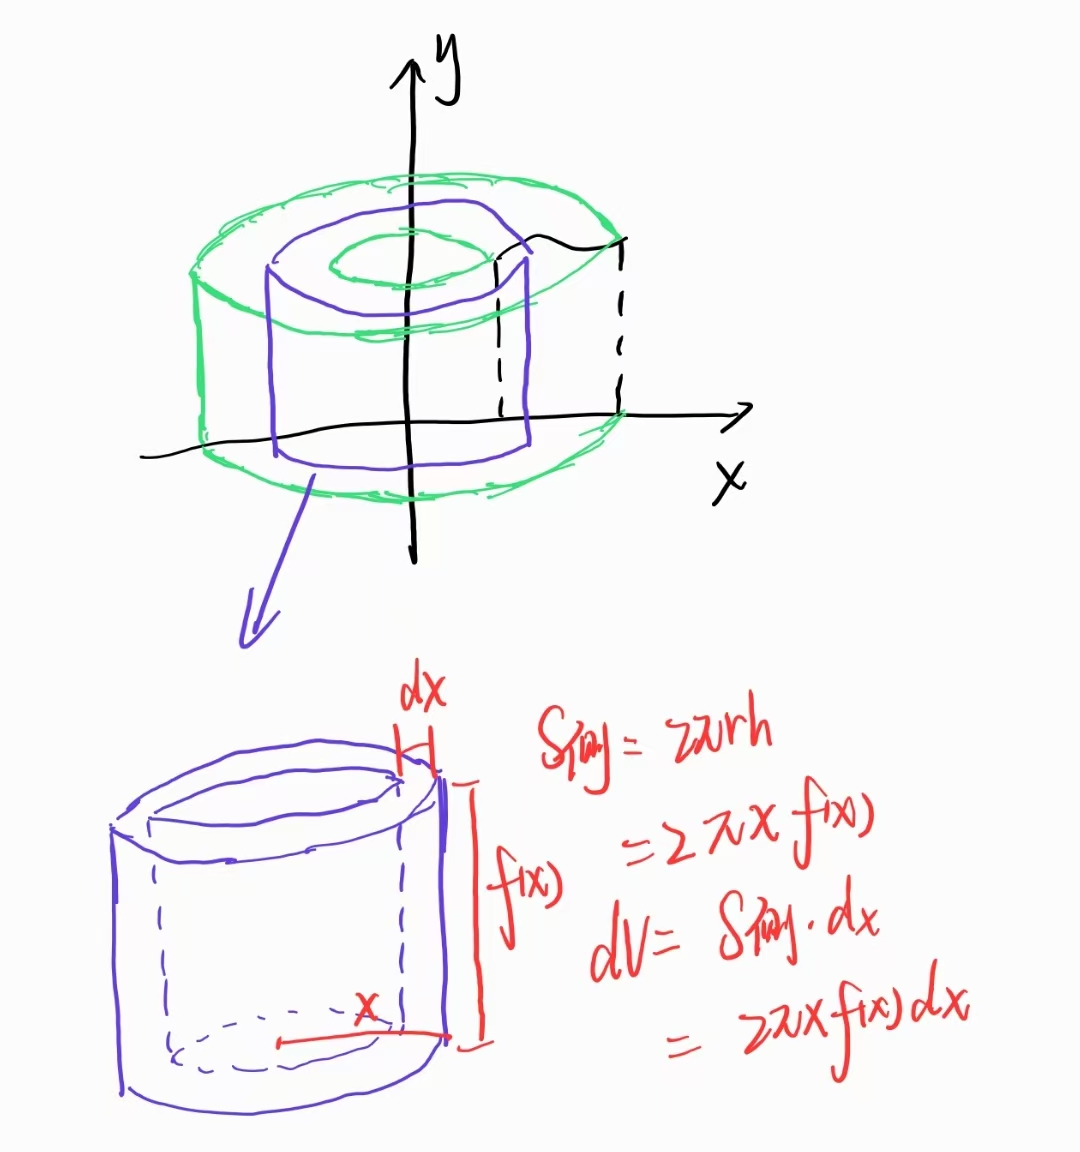 y
x
dx
S侧 = 2πrh
= 2πx f(x)
f(x)
dV = S侧 · dx
x
= 2πx f(x) dx